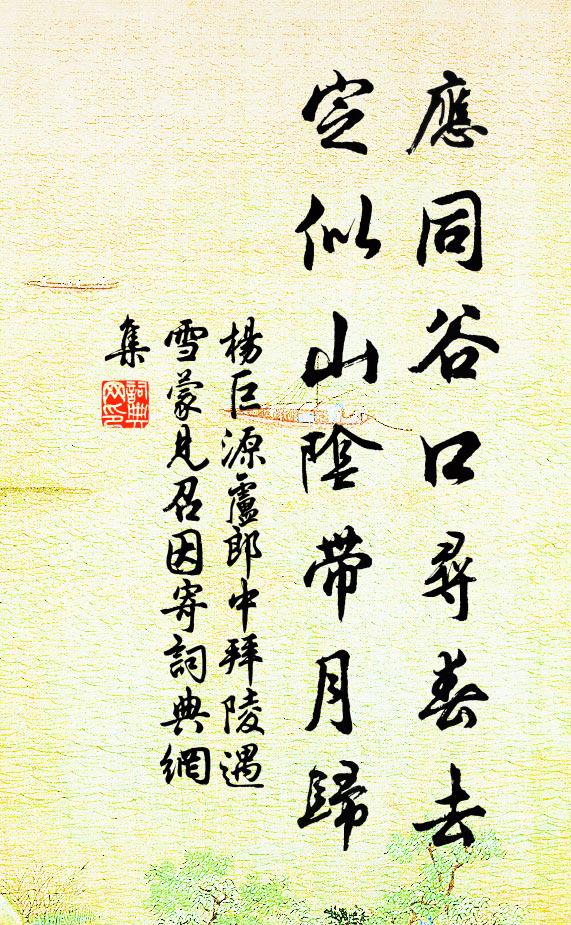 應同谷口尋春去
定似山陰帶月歸
楊巨源盧郎中拜陵遇
雪蒙見召因寄詞典網
集
詞典網印